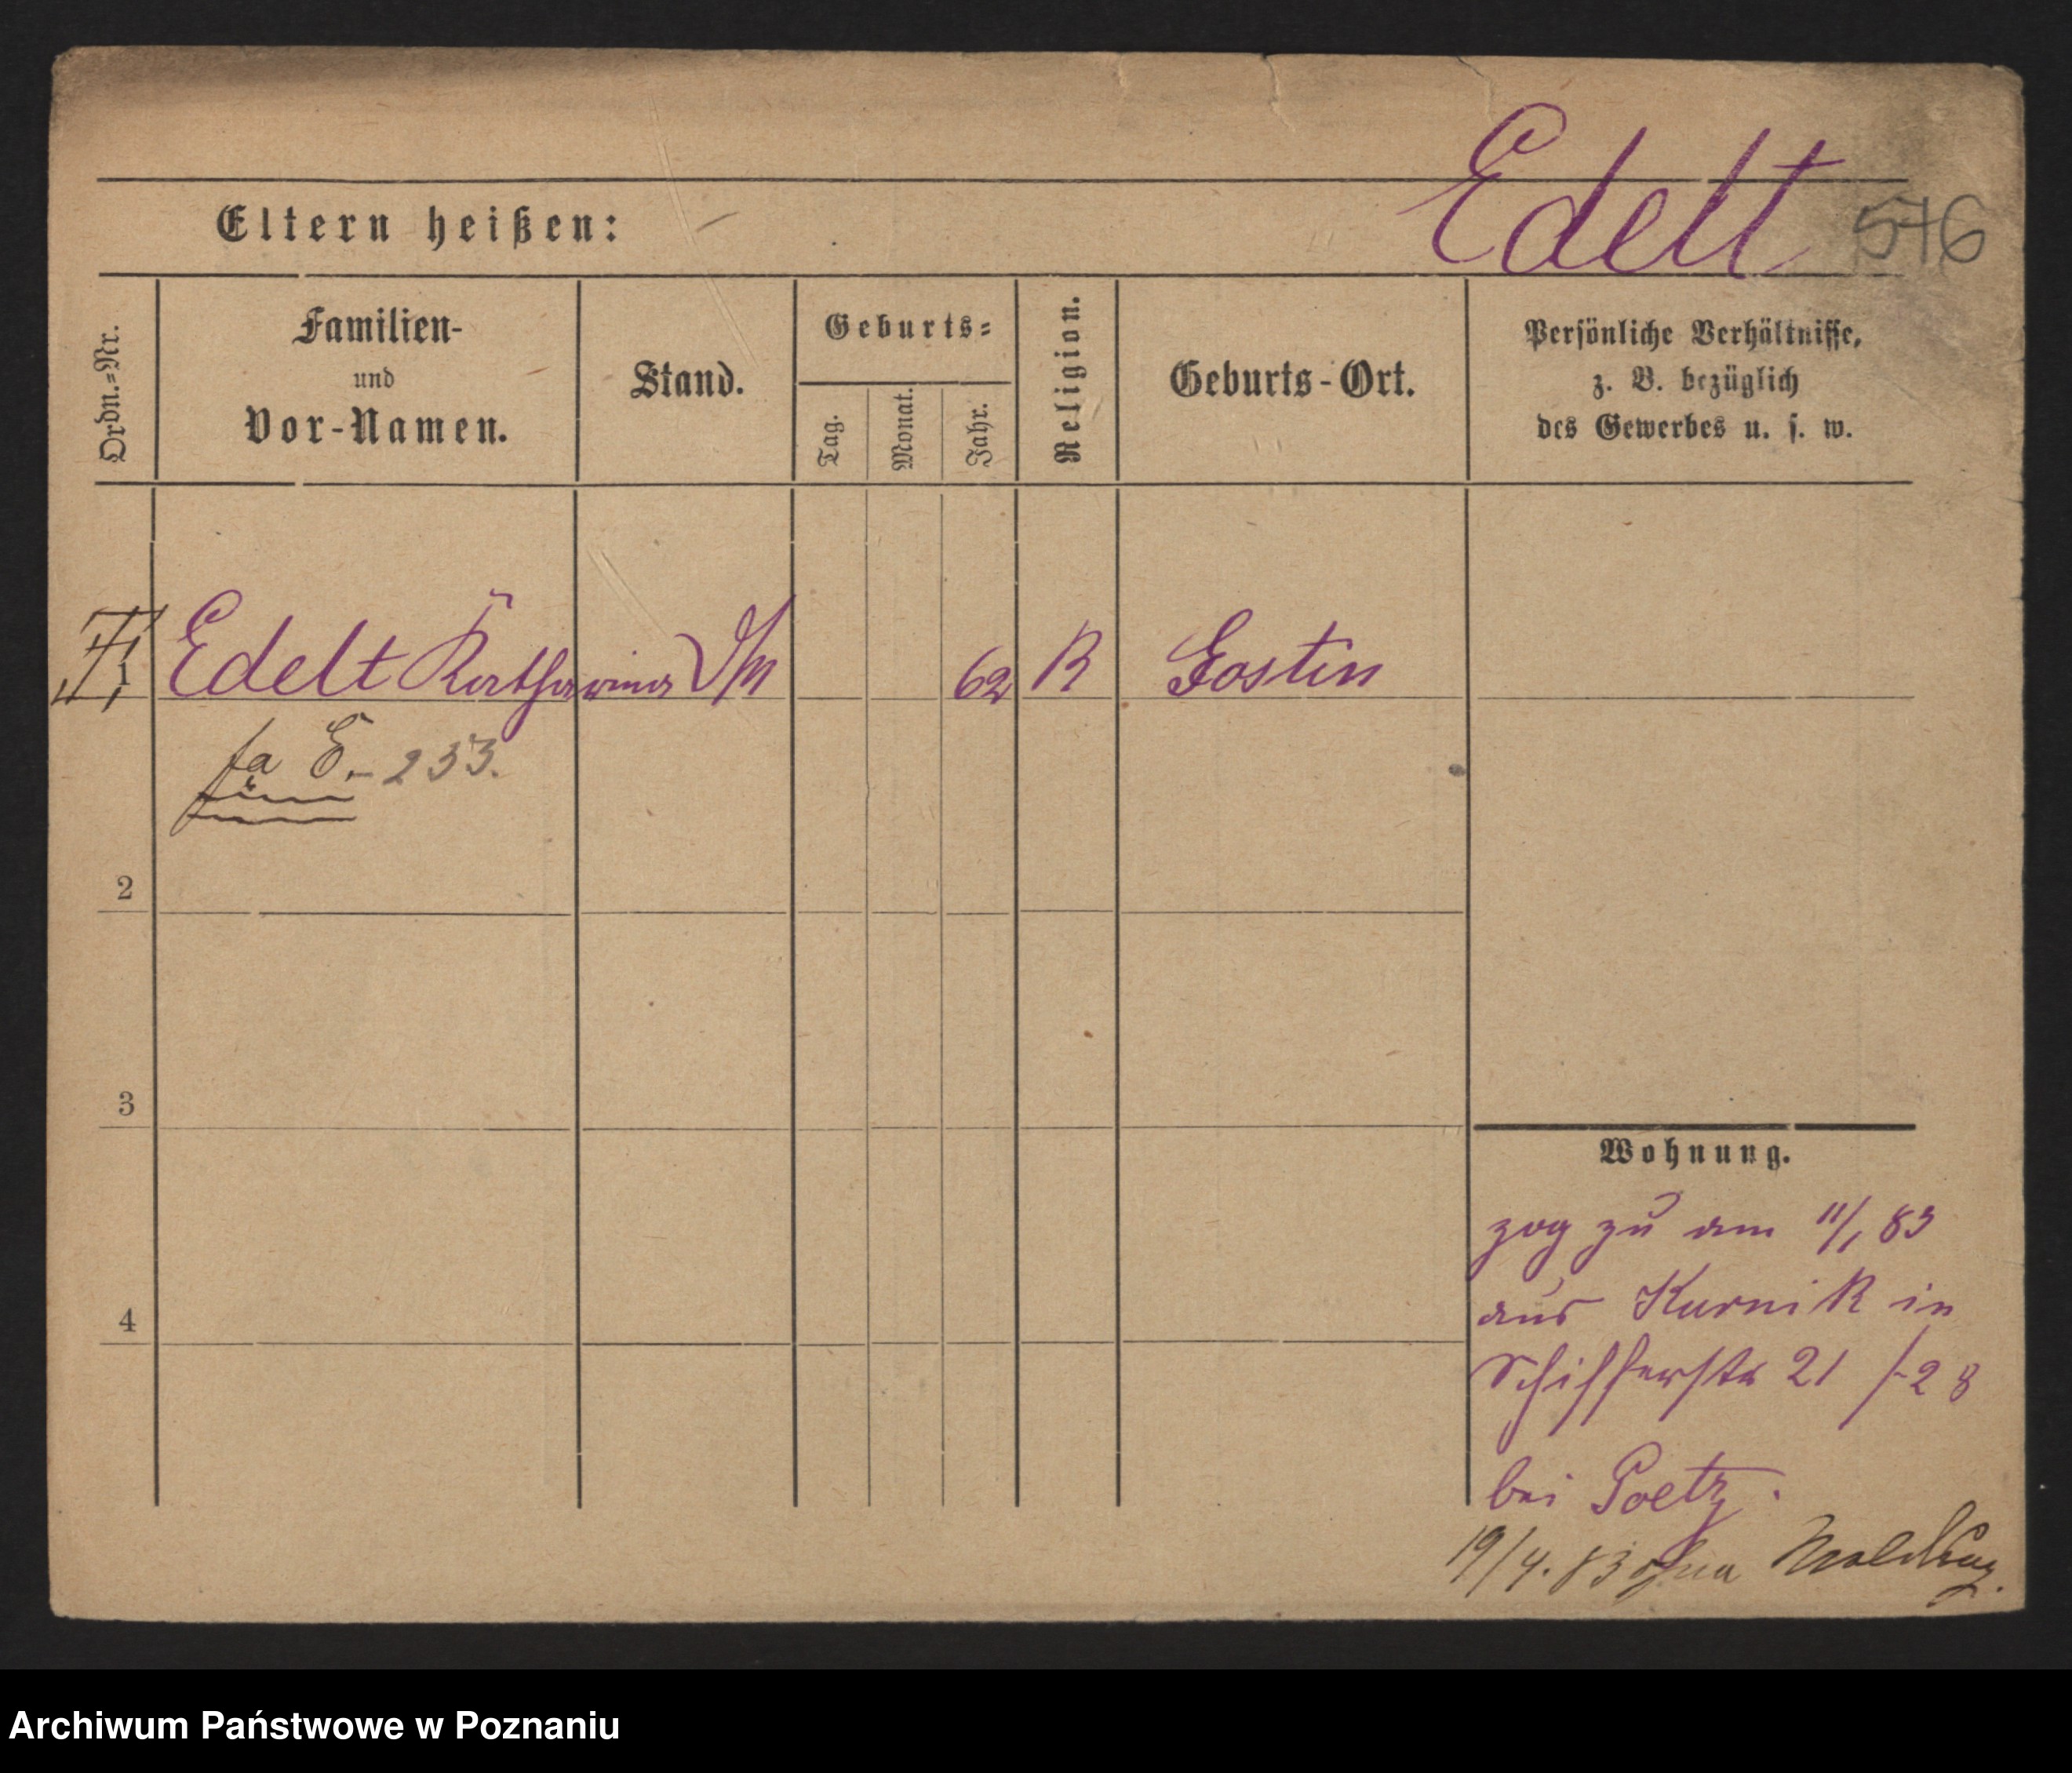 Edelt 546
Eltern heißen:
Ordn.=Nr.
Familien-
und
Vor-Namen.
Stand.
Geburts=
Tag.
Monat.
Jahr.
Religion.
Geburts-Ort.
Persönliche Verhältnisse,
z. B. bezüglich
des Gewerbes u. s. w.
1 Edelt Katharina D/M 62 R Gostin
fa E.- 233.
2
3
4
Wohnung.
zog zu am 11/1 83
aus Kurnik in
Schifferstr 21 /-28
bei Goetz.
19/4. 83 ohne Meldung.
Archiwum Państwowe w Poznaniu